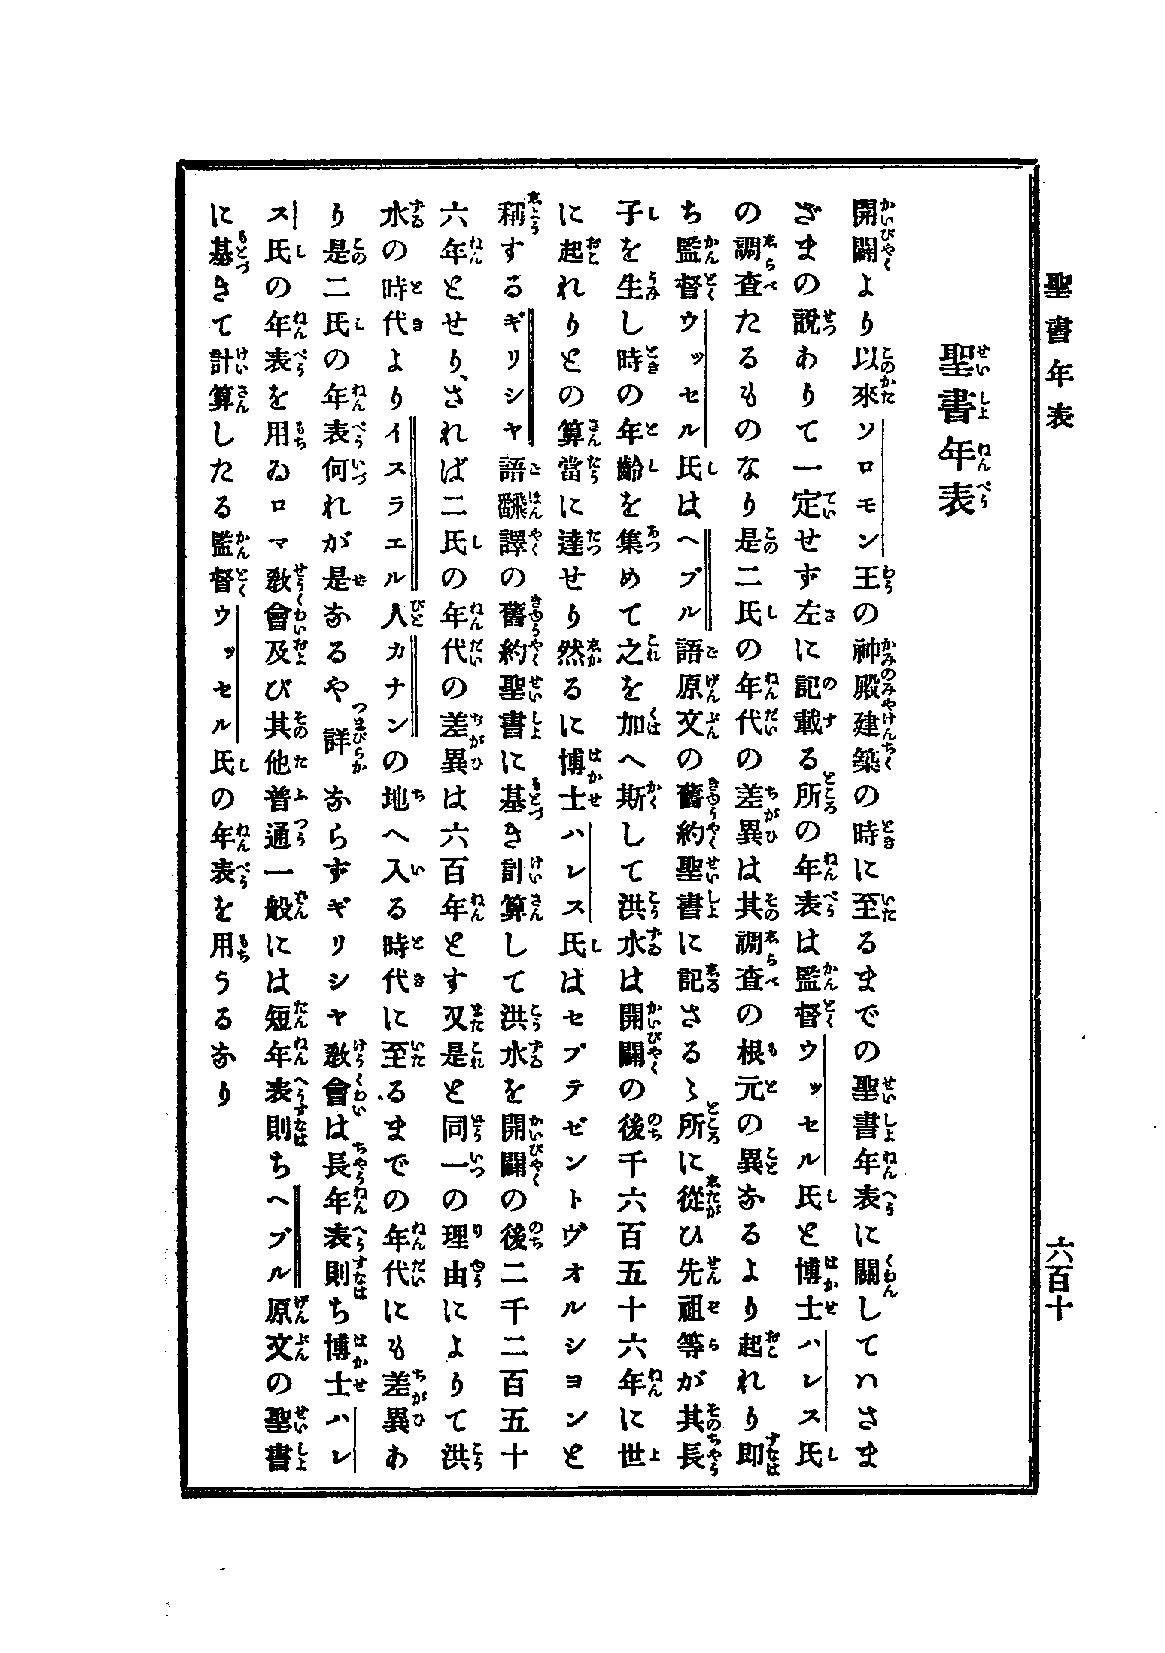 聖書年表
六百十
聖書年表
開闢より以來ソロモン王の神殿建築の時に至るまでの聖書年表に關してハさま
ざまの說ありて一定せず左に記載る所の年表は監督ウッセル氏と博士ハレス氏
の調查たるものなり是二氏の年代の差異は其調查の根元の異なるより起れり即
ち監督ウッセル氏はヘブル語原文の舊約聖書に記さるゝ所に從ひ先祖等が其長
子を生し時の年齡を集めて之を加へ斯して洪水は開闢の後千六百五十六年に世
に起れりとの算當に達せり然るに博士ハレス氏はセプテゼントヴオルシヨンと
稱するギリシヤ語飜譯の舊約聖書に基き計算して洪水を開闢の後二千二百五十
六年とせり、されば二氏の年代の差異は六百年とす又是と同一の理由によりて洪
水の時代よりイスラエル人カナンの地へ入る時代に至るまでの年代にも差異あ
り是二氏の年表何れが是なるや詳ならずギリシヤ敎會は長年表則ち博士ハレ
ス氏の年表を用ゐロマ敎會及び其他普通一般には短年表則ちヘブル原文の聖書
に基きて計算したる監督ウッセル氏の年表を用うるなり